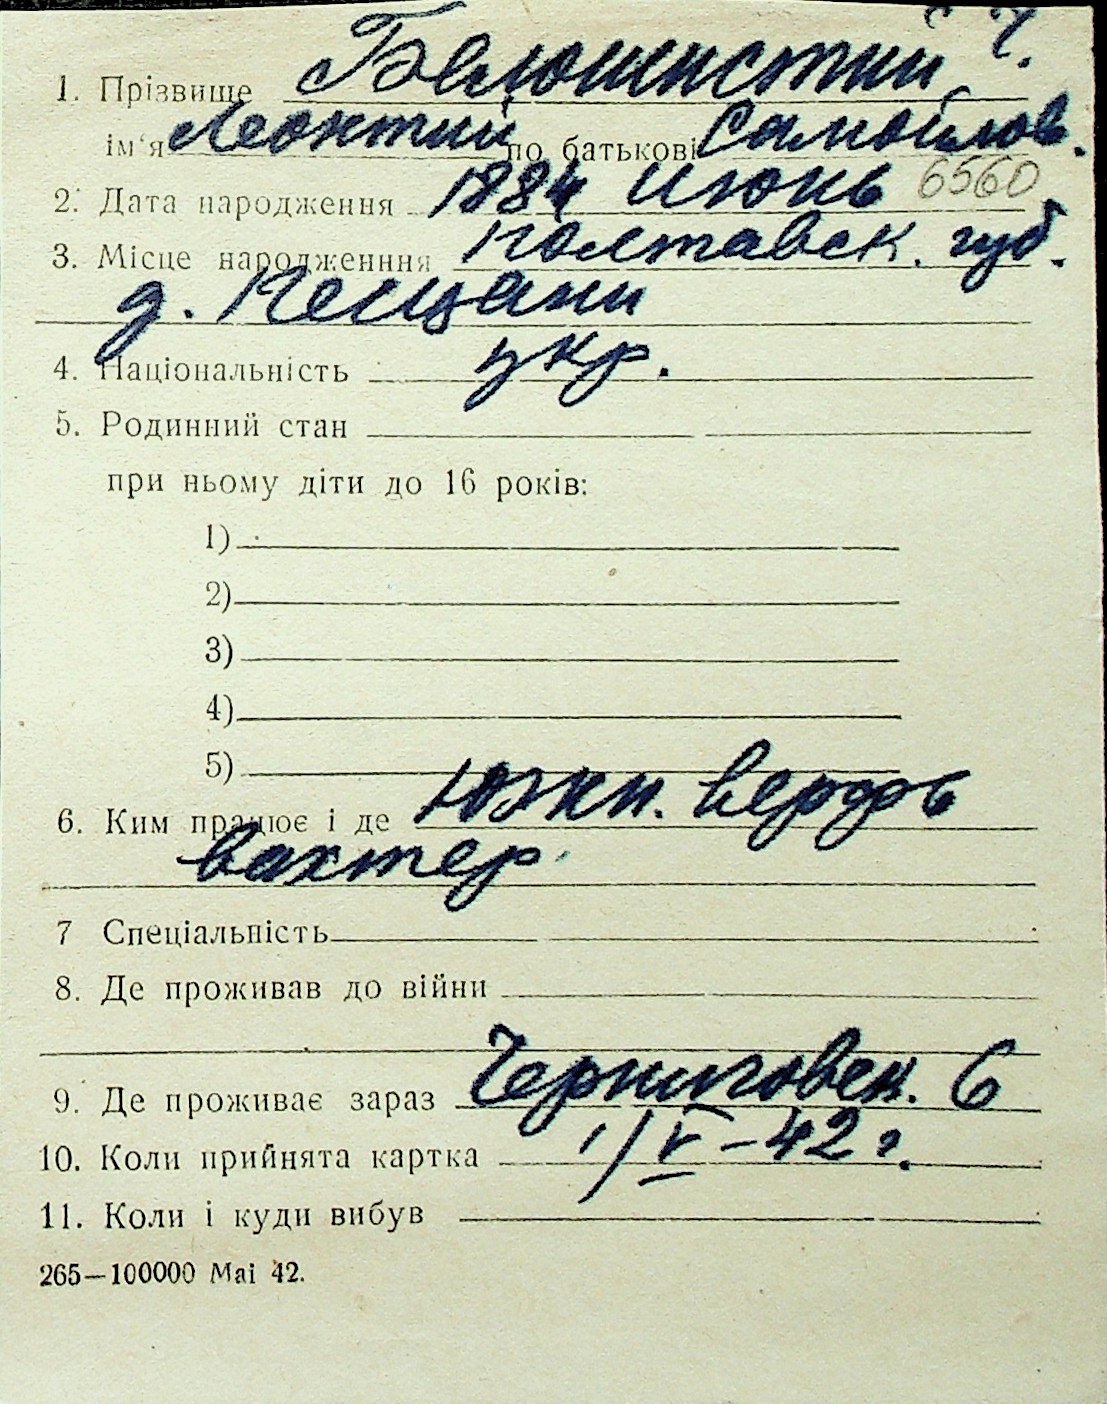 Ч.
1. Прізвище Белошистий
ім'я Леонтий по батькові Самойлов.
2. Дата народження 1884 июнь 6560
3. Місце народженння Полтавск. губ.
д. Пещани
4. Національність укр.
5. Родинний стан
при ньому діти до 16 років:
1)
2)
3)
4)
5)
6. Ким працює і де Южн. верфь
вахтер
7 Спеціальність
8. Де проживав до війни
9. Де проживає зараз Черниговск. 6
10. Коли прийнята картка 1/V-42 г.
11. Коли і куди вибув
265—100000 Маі 42.